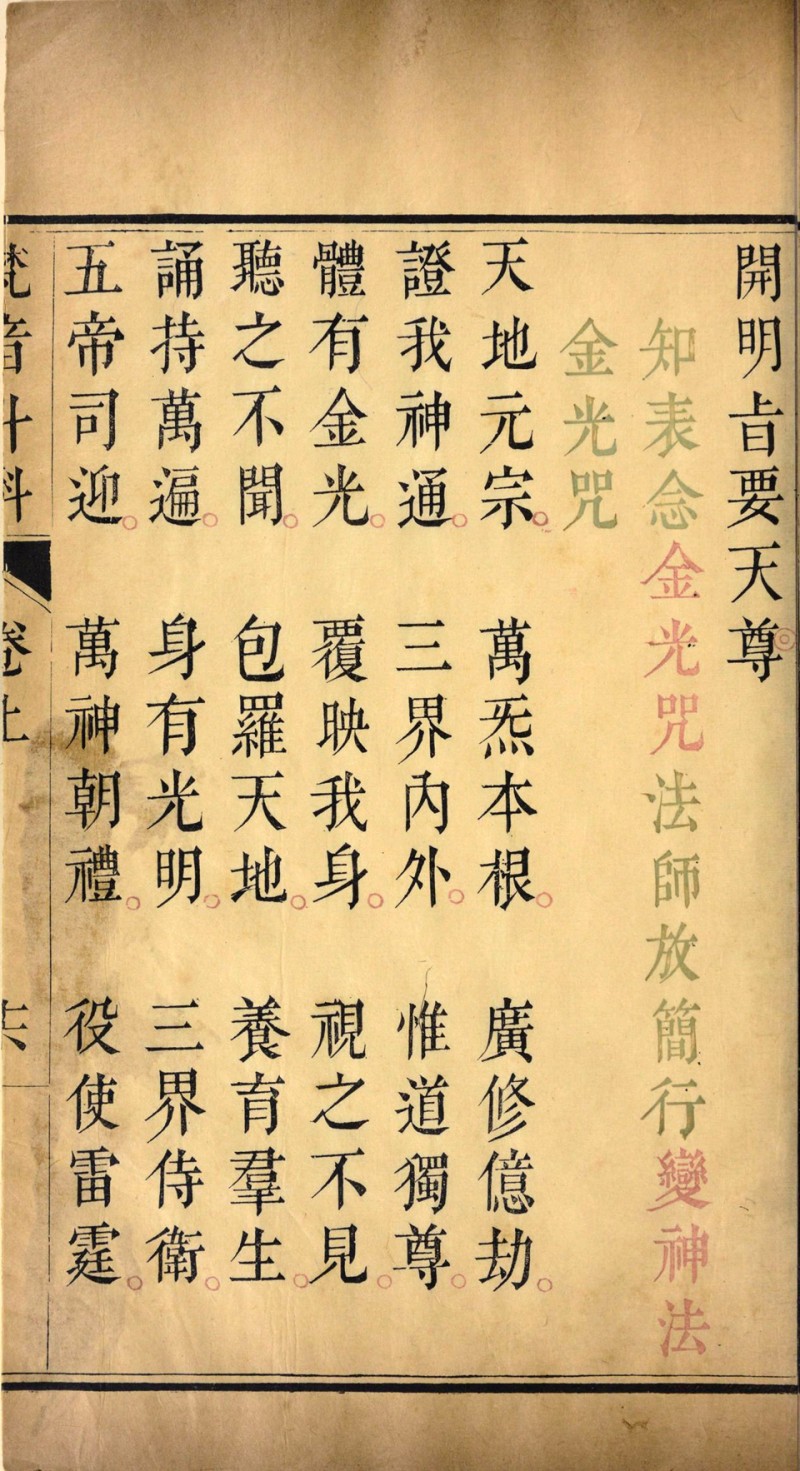 開明㫖要天尊
知表念金光咒法師放簡行變神法
金光咒
天地元宗 萬炁本根 廣修億劫
證我神通 三界內外 惟道獨尊
體有金光 覆映我身 視之不見
聽之不聞 包羅天地 養育羣生
誦持萬遍 身有光明 三界侍衛
五帝司迎 萬神朝禮 役使雷霆
梵音斗科 卷上